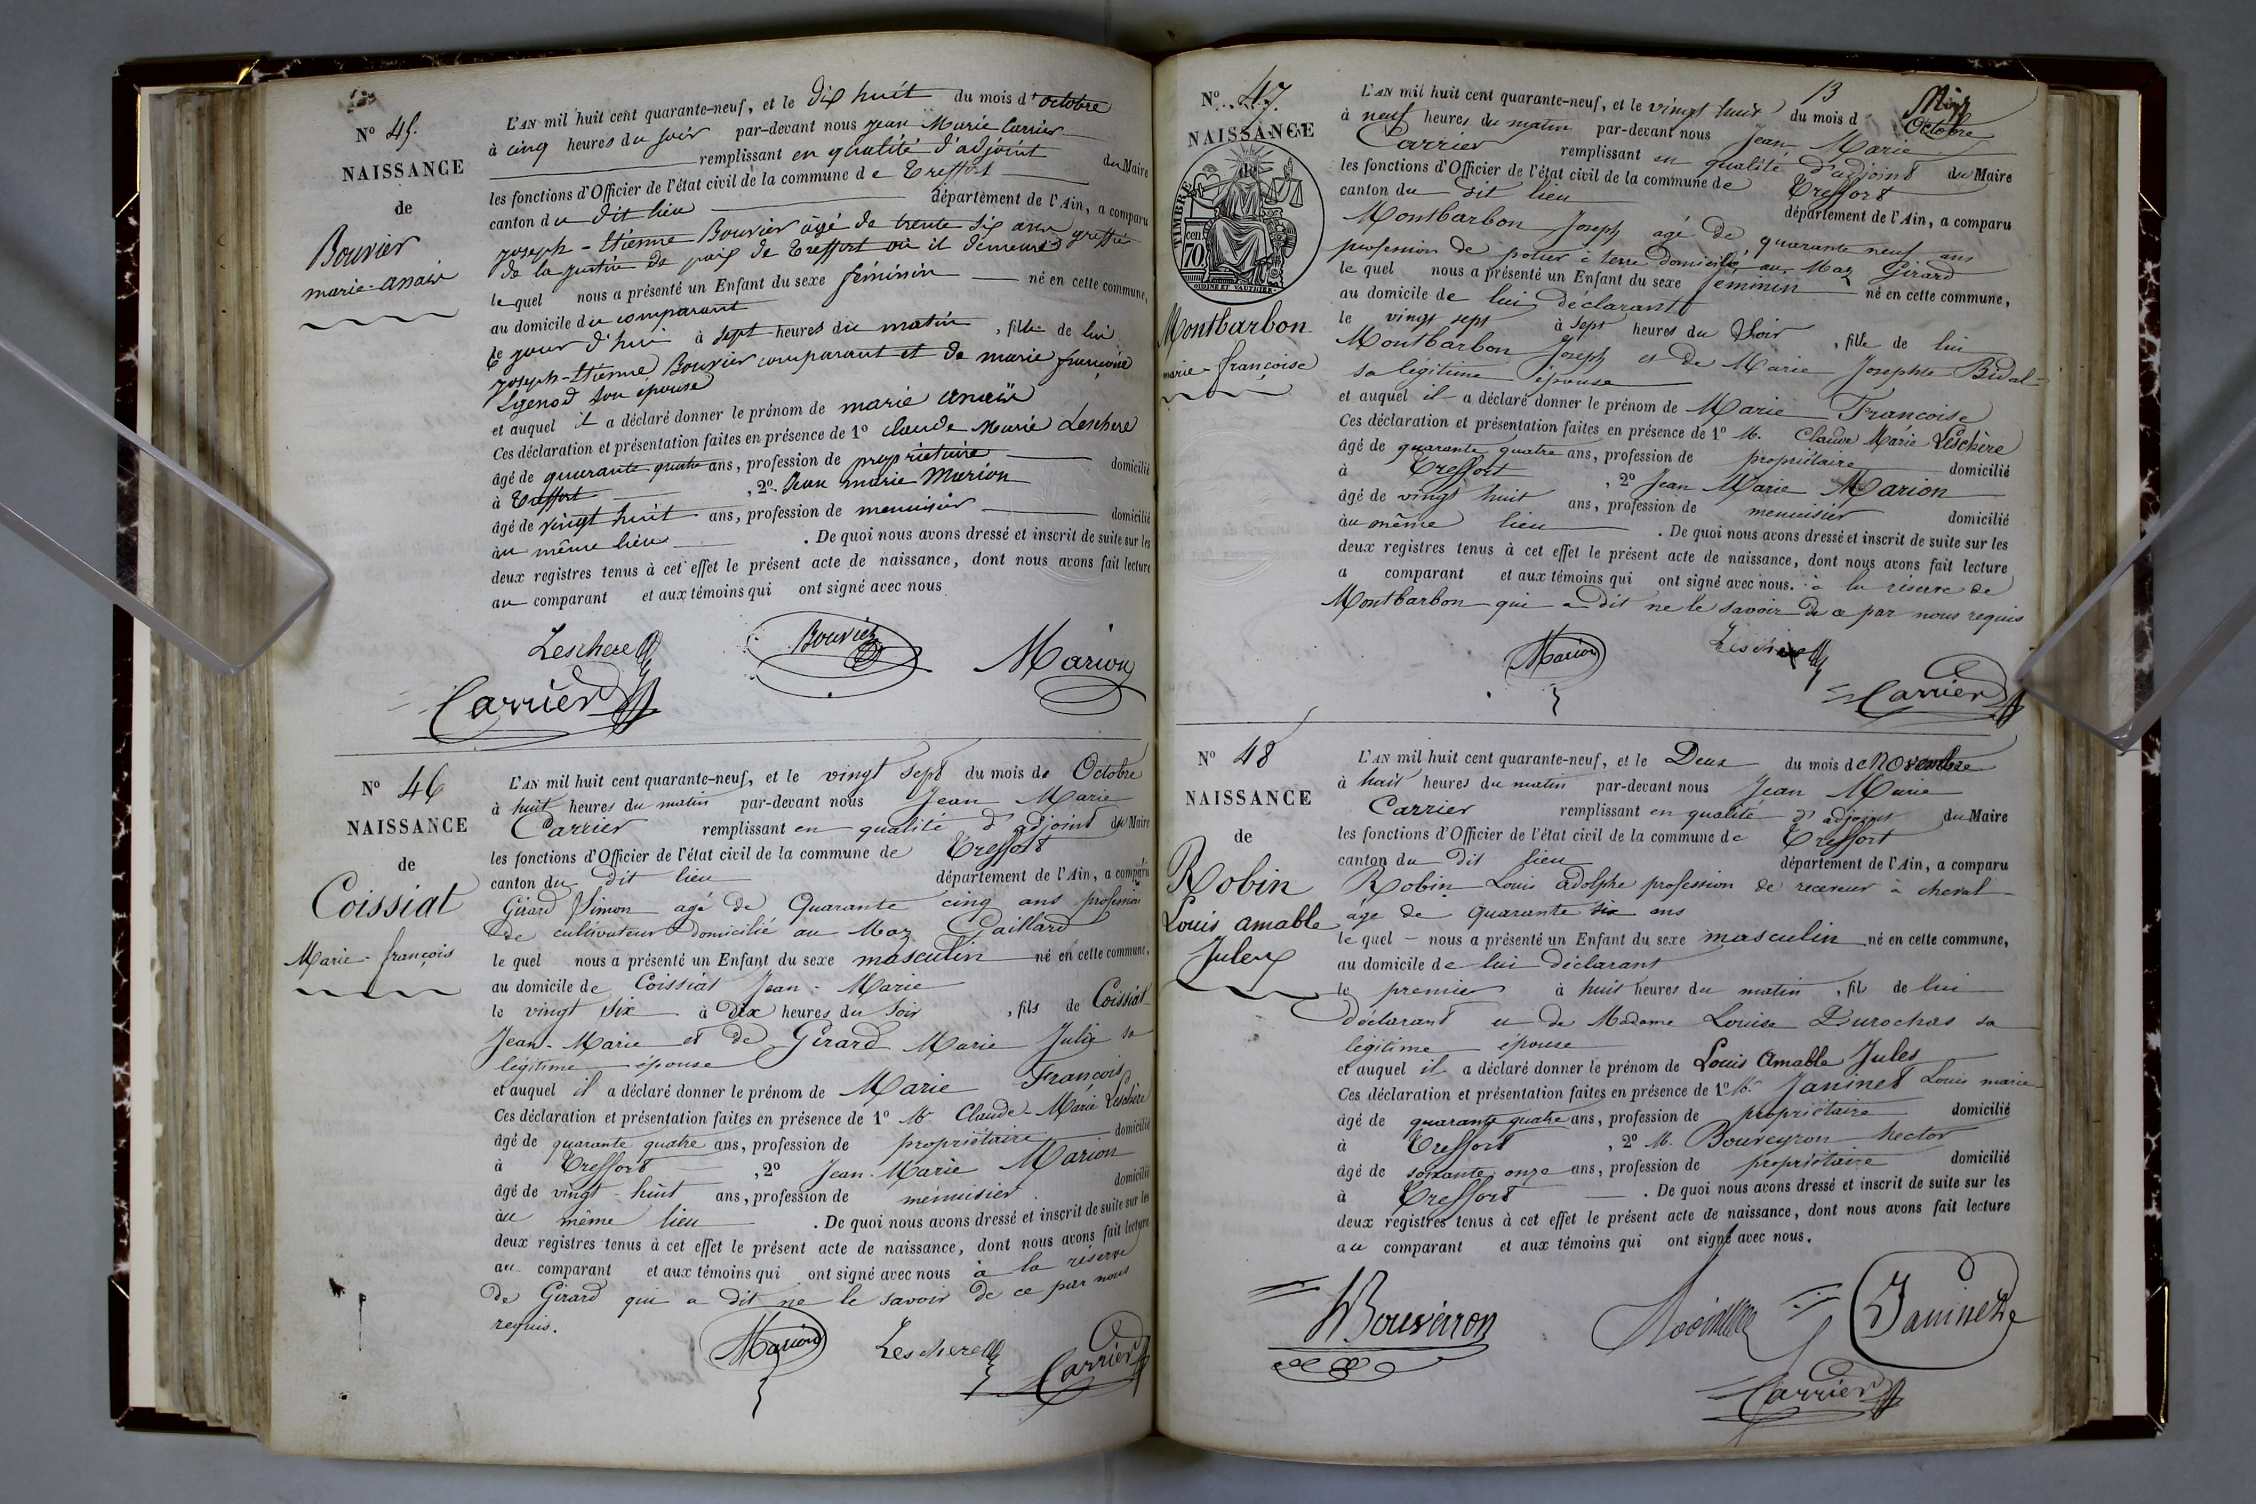 N° 45.
NAISSANCE
de
Bouvier
marie-anaïs
L'AN mil huit cent quarante-neuf, et le dix huit du mois d'octobre
à cinq heures du soir par-devant nous jean Marie Carrier
remplissant en qualité d'adjoint du Maire
les fonctions d'Officier de l'état civil de la commune de Treffort
canton du dit lieu département de l'Ain, a comparu
joseph-Etienne Bouvier âgé de trente six ans greffier
de la justice de paix de Treffort où il demeure
lequel nous a présenté un Enfant du sexe féminin né en cette commune,
au domicile du comparant
le jour d'hui à sept heures du matin, fille de lui
joseph-Etienne Bouvier comparant et de marie françoise
son épouse
et auquel il a déclaré donner le prénom de marie anaïs
Ces déclaration et présentation faites en présence de 1° claude Marie Leschere
âgé de quarante quatre ans, profession de propriétaire domicilié
à Treffort, 2° Jean marie Marion
âgé de vingt huit ans, profession de menuisier domicilié
au même lieu. De quoi nous avons dressé et inscrit de suite sur les
deux registres tenus à cet effet le présent acte de naissance, dont nous avons fait lecture
au comparant et aux témoins qui ont signé avec nous
Leschere Bouvier Marion
Carrier
N° 46
NAISSANCE
de
Coissiat
Marie-françois
L'AN mil huit cent quarante-neuf, et le vingt sept du mois de Octobre
à huit heures du matin par-devant nous Jean Marie
Carrier remplissant en qualité d'adjoint du Maire
les fonctions d'Officier de l'état civil de la commune de Treffort
canton du dit lieu département de l'Ain, a comparu
Girard Simon agé de Quarante cinq ans profession
de cultivateur domicilié au Maz Gaillard
le quel nous a présenté un Enfant du sexe masculin né en cette commune,
au domicile de Coissiat Jean-Marie
le vingt six à Dix heures du Soir, fils de Coissiat
Jean-Marie et de Girard Marie Julie sa
légitime épouse
et auquel il a déclaré donner le prénom de Marie François
Ces déclaration et présentation faites en présence de 1° Mr Claude-Marie Leschère
âgé de quarante quatre ans, profession de propriétaire domicilié
à Treffort, 2° Jean-Marie Marion
âgé de vingt-huit ans, profession de menuisier domicilié
au même lieu. De quoi nous avons dressé et inscrit de suite sur les
deux registres tenus à cet effet le présent acte de naissance, dont nous avons fait lecture
au comparant et aux témoins qui ont signé avec nous à la réserve
de Girard qui a dit ne le savoir de ce par nous
requis.
Marion Leschere Carrier
13
N° 47.
NAISSANCE
TIMBRE
cen
70
OUDINE ET VAUTHIER.
Montbarbon
marie-françoise
L'AN mil huit cent quarante-neuf, et le vingt huit du mois d Octobre
à neuf heures du matin par-devant nous Jean Marie
Carrier remplissant en qualité d'adjoint du Maire
les fonctions d'Officier de l'état civil de la commune de Treffort
canton du dit lieu département de l'Ain, a comparu
Montbarbon Joseph agé de quarante neuf ans
profession de potier à terre domicilié au Maz Girard
le quel nous a présenté un Enfant du sexe femmin né en cette commune,
au domicile de lui déclarant
le vingt sept à sept heures du Soir, fille de lui
Montbarbon Joseph et de Marie Josephte Bidal
sa légitime épouse
et auquel il a déclaré donner le prénom de Marie Françoise
Ces déclaration et présentation faites en présence de 1° M. Claude Marie Leschère
âgé de quarante quatre ans, profession de propriétaire domicilié
à Treffort, 2° Jean Marie Marion
âgé de vingt huit ans, profession de menuisier domicilié
au même lieu. De quoi nous avons dressé et inscrit de suite sur les
deux registres tenus à cet effet le présent acte de naissance, dont nous avons fait lecture
a comparant et aux témoins qui ont signé avec nous. à la réserve de
Montbarbon qui a dit ne le savoir de ce par nous requis
Marion Leschere
Carrier
N° 48
NAISSANCE
de
Robin
Louis amable
Jules
L'AN mil huit cent quarante-neuf, et le Deux du mois de Novembre
à huit heures du matin par-devant nous Jean Marie
Carrier remplissant en qualité d'adjoint du Maire
les fonctions d'Officier de l'état civil de la commune de Treffort
canton du dit lieu département de l'Ain, a comparu
Robin Louis adolphe profession de receveur à cheval
âge de quarante six ans
le quel nous a présenté un Enfant du sexe masculin né en cette commune,
au domicile de lui déclarant
le premier à huit heures du matin, fils de lui
déclarant et de Madame Louise Durochas sa
légitime épouse
et auquel il a déclaré donner le prénom de Louis Amable Jules
Ces déclaration et présentation faites en présence de 1° Mr Janinet Louis marie
âgé de quarante quatre ans, profession de propriétaire domicilié
à Treffort, 2° M. Bouveyron hector
âgé de soixante onze ans, profession de propriétaire domicilié
à Treffort. De quoi nous avons dressé et inscrit de suite sur les
deux registres tenus à cet effet le présent acte de naissance, dont nous avons fait lecture
au comparant et aux témoins qui ont signé avec nous.
Bouveiron Janinet
Carrier